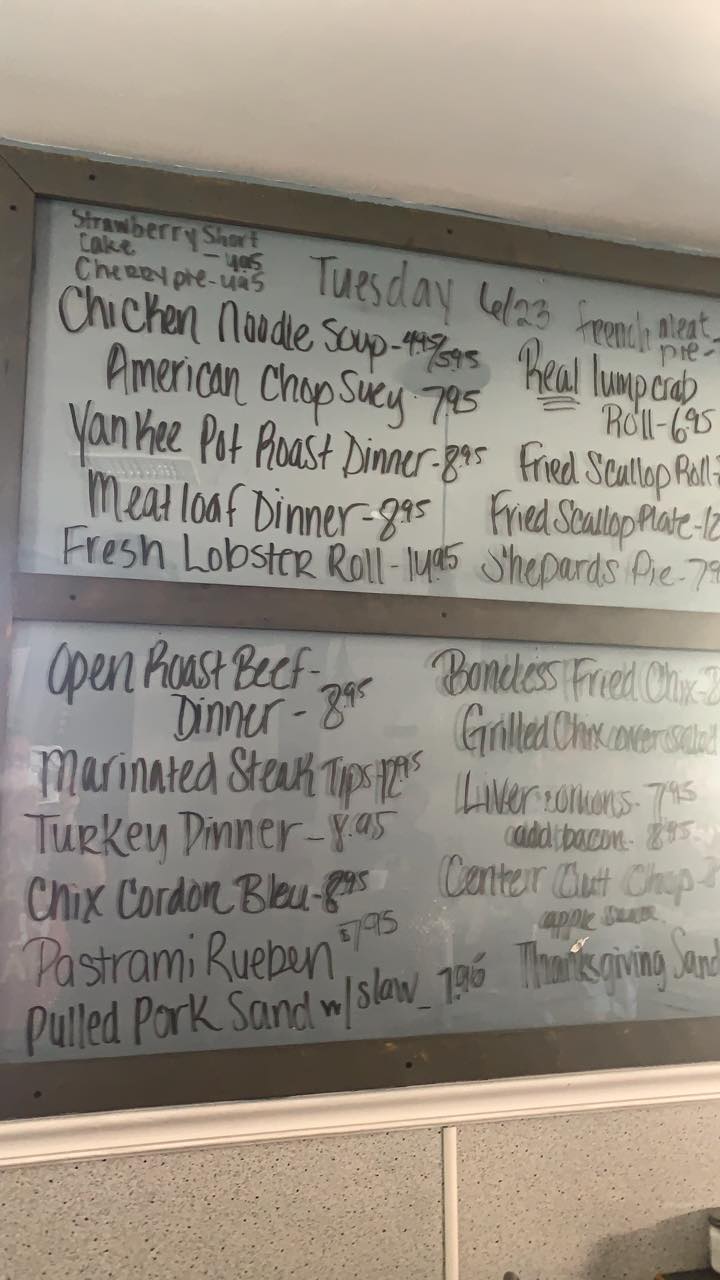 Strawberry Short
Cake - 4.95
Cherry pie - 4.95
Tuesday 6/23
Chicken Noodle Soup - 4.95/5.95
American Chop Suey 7.95
Yankee Pot Roast Dinner - 8.95
Meatloaf Dinner - 8.95
Fresh Lobster Roll - 14.95
french meat
pie -
Real lump crab
Roll - 6.95
Fried Scallop Roll -
Fried Scallop Plate - 12
Shepards Pie - 7.9
Open Roast Beef -
Dinner - 8.95
Marinated Steak Tips 12.95
Turkey Dinner - 8.95
Chix Cordon Bleu - 8.95
Pastrami Rueben $7.95
Pulled Pork Sand w/ slaw - 7.95
Boneless Fried Chix -
Grilled Chix over salad
Liver & onions - 7.95
add bacon - 8.95
Center Cutt Chop -
apple sauce
Thanksgiving Sand